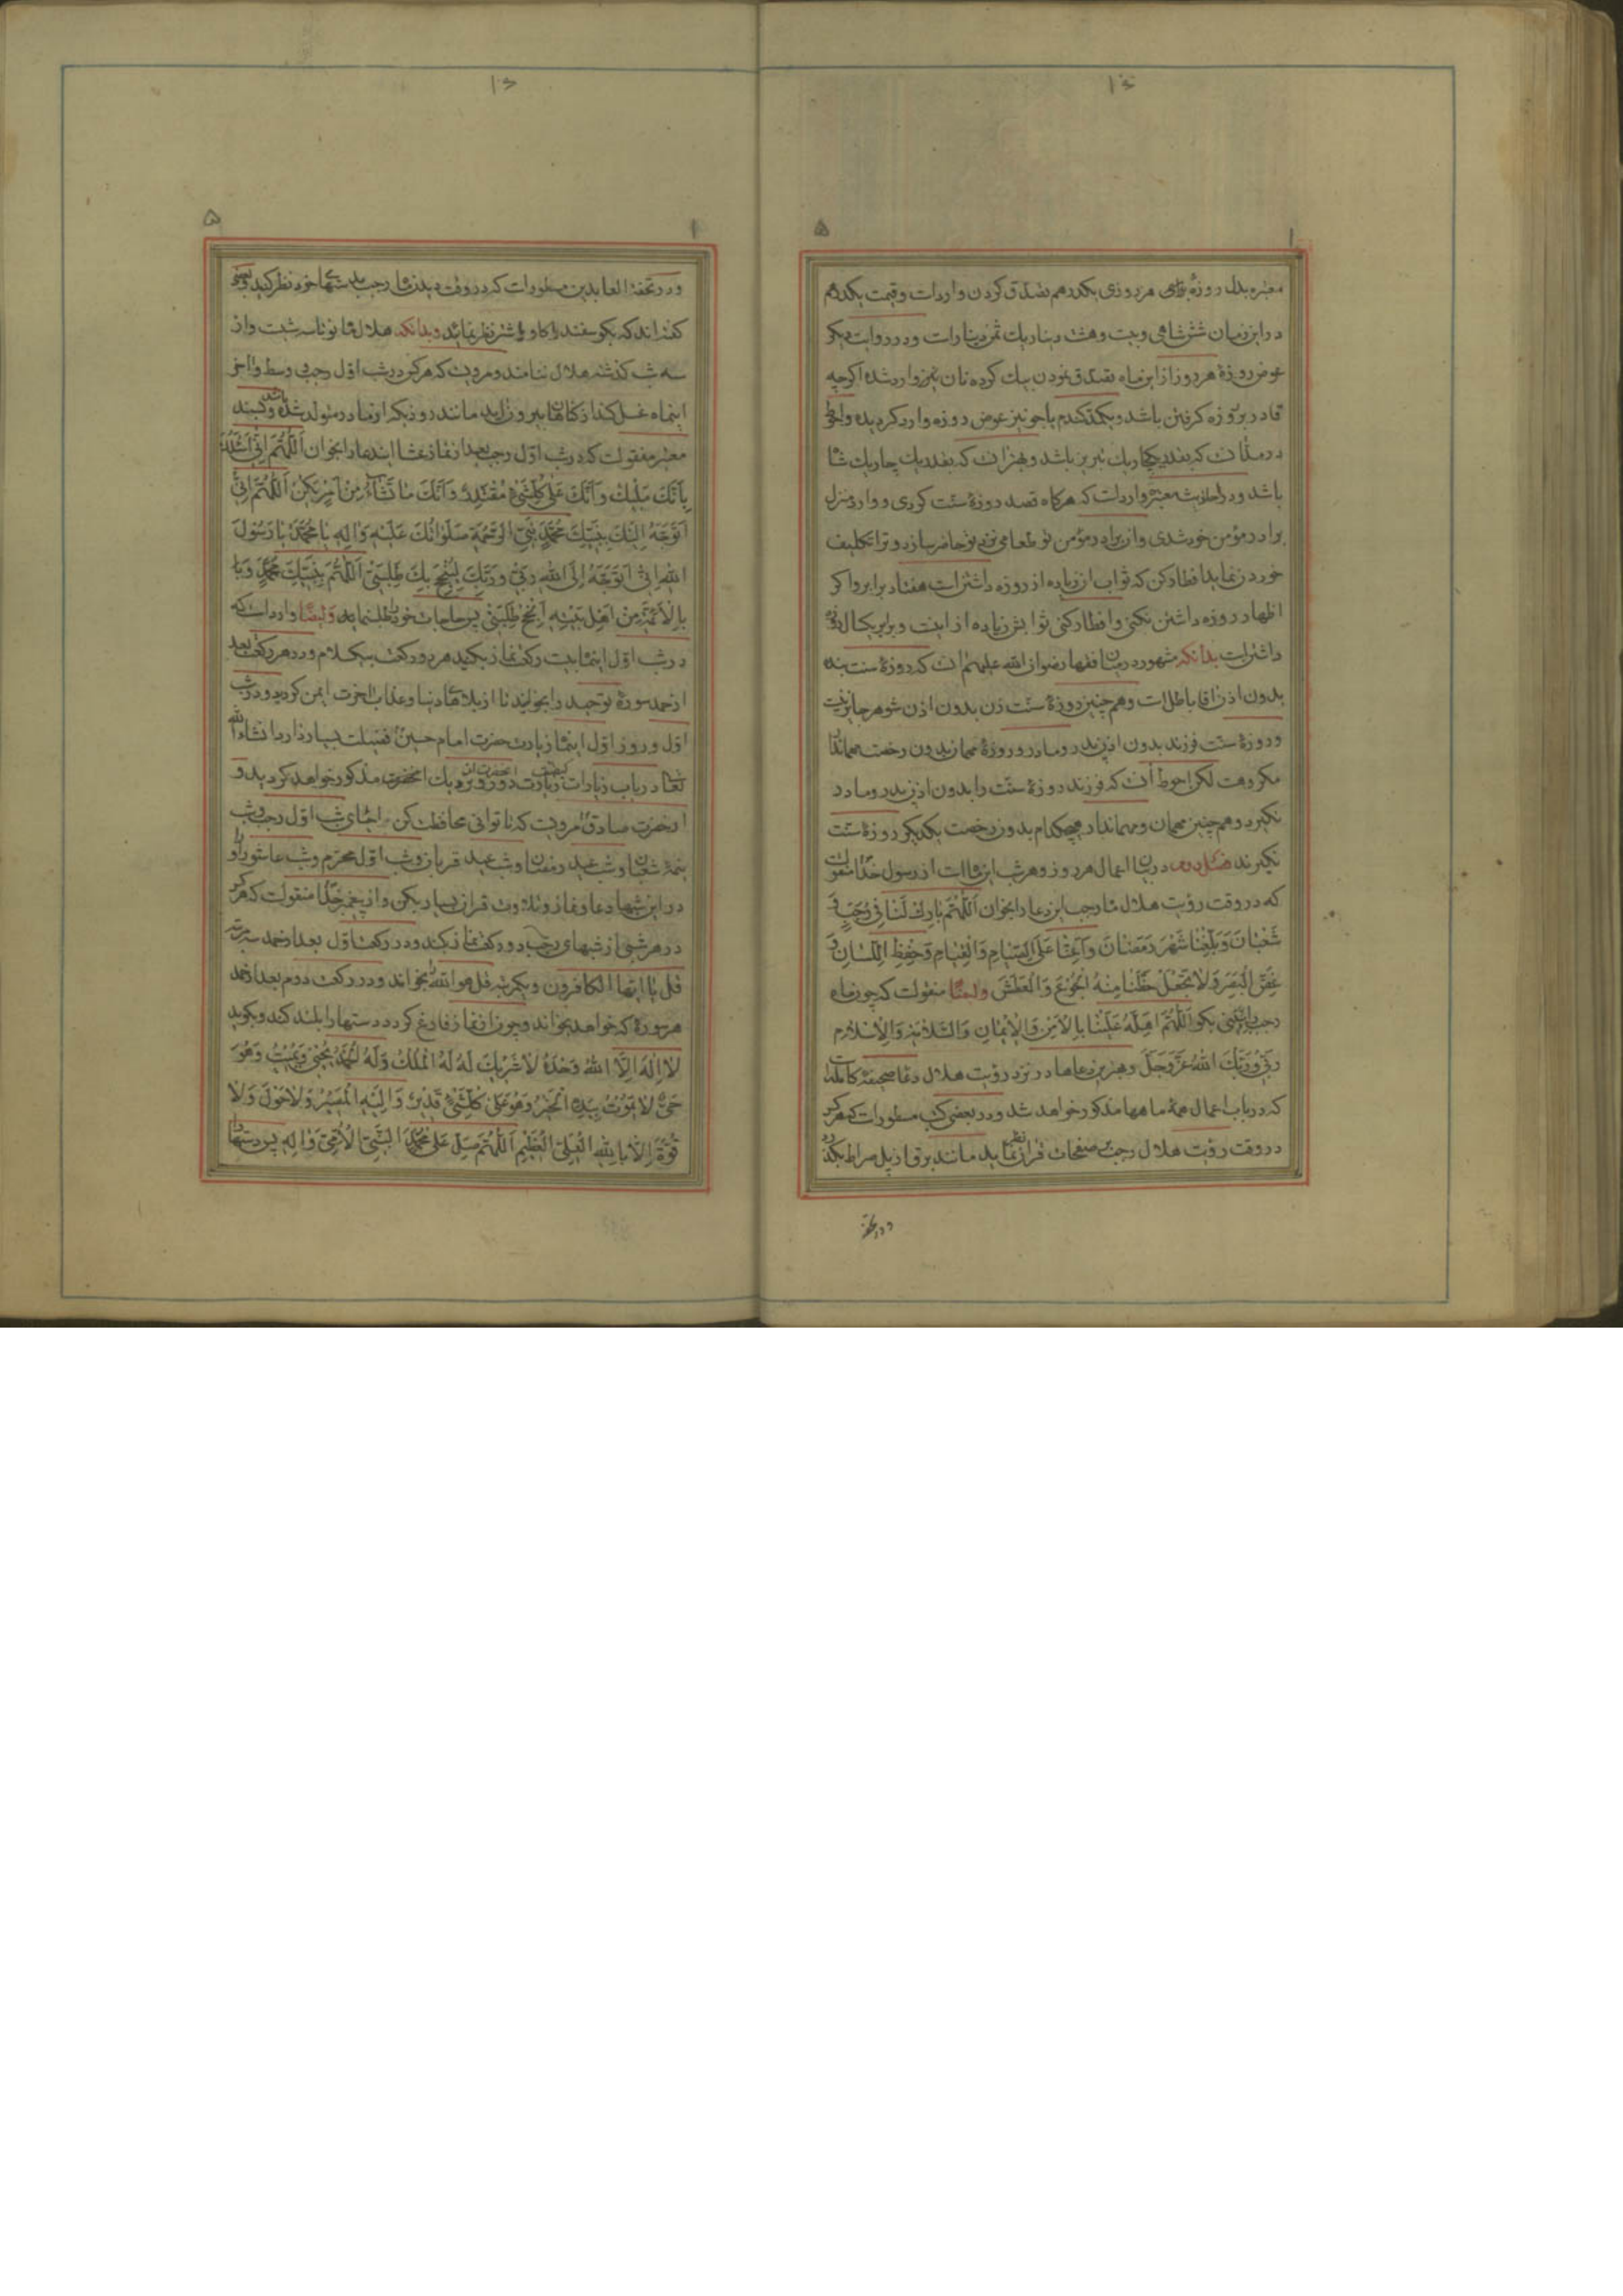 معتبره بدل روزهٔ برای هر روزی یکدرهم تصدق کردن وارداست و قیمت یکدرهم
در این زمان شش شاهی و بیست و هشت دینار یک ثمن دینار است و در روایت دیگر
عوض روزهٔ هر روز از این ماه تصدق نمودن بیک کرده نان نیز وارد شده اگر چه
قادر بر روزه کرفتن باشد و یکمد کندم یا جو نیز عوض روزه وارد کردیده و احوط
باشد و در احادیث معتبره وارد است که هرکاه قصد روزهٔ سنت کردی و وارد منزل
برادر مؤمن خود شدی و آن برادر مؤمن تو طعامی نزد تو حاضر سازد و ترا تکلیف
خوردن نماید افطار کن که ثواب آن زیاده از روزه داشتن است هفتاد برابر و اکر
اظهار روزه داشتن نکنی و افطار کنی ثوابش زیاده از اینست و برابر یکسال روزه
داشتن است بدانکه مشهور در میان فقها رضوان الله علیهم انست که روزهٔ سنت بنده
بدون اذن آقا باطل است و هم چنین روزهٔ سنت زن بدون اذن شوهر جایز نیست
و روزهٔ سنت فرزند بدون اذن پدر و مادر و روزهٔ مهمان بدون رخصت مهماندار
مکروهست لکن احوط آنست که فرزند روزهٔ سنت را بدون اذن پدر و مادر
نکیرد و هم چنین مهمان و مهماندار هیچکدام بدون رخصت یکدیکر روزهٔ سنت
نکیرند فصل دوم در بیان اعمال هر روز و هر شب این ماه است از رسول خدا منقولست
که در وقت رؤیت هلال ماه رجب این دعا را بخوان اَللّٰهُمَّ بارِكْ لَنا فی رَجَبٍ وَ
شَعْبانَ وَبَلِّغْنا شَهْرَ رَمَضانَ وَاَعِنّا عَلَی الصِّیامِ وَالْقِیامِ وَحِفْظِ اللِّسانِ وَ
غَضِّ الْبَصَرِ وَلا تَجْعَلْ حَظَّنا مِنْهُ الْجُوعَ وَالْعَطَشَ وایضاً منقولست که چون ماه
رجب را ببینی بکو اَللّٰهُمَّ اَهِلَّهُ عَلَیْنا بِالاَمْنِ وَالْاِیمانِ وَالسَّلامَةِ وَالْاِسْلامِ
رَبّی وَرَبُّكَ اللهُ عَزَّوَجَلَّ و بهترین دعاها در نزد رؤیت هلال دعاء صحیفهٔ کامله است
که در باب اعمال همهٔ ماهها مذکور خواهد شد و در بعضی کتب مسطور است که هرکس
در وقت رؤیت هلال رجب بر صفحات قران نظر نماید مانند برق از پل صراط بکذرد
و در تحفة العابدین مسطور است که در وقت دیدن ماه رجب بدستهای خود نظر کنید و بعضی
کفته‌اند که بکوسفند یا کاو یا شتر نظر نمائید و بدانکه هلال ماه نو تا سه شبست و از
سه شب کذشته هلال ننامند و مرویست که هرکس در شب اول رجب و وسط و آخر
اینماه غسل کند از کناهان بیرون آید مانند روزیکه از مادر متولد شده باشد و بسند
معتبر منقولست که در شب اول رجب بعد از نماز عشا این دعا را بخوان اَللّٰهُمَّ اِنّی اَسْئَلُكَ
بِاَنَّكَ مَلِیكٌ وَاَنَّكَ عَلی کُلِّ شَیْءٍ مُقْتَدِرٌ وَاَنَّكَ ما تَشاءُ مِنْ اَمْرٍ یَکُنْ اَللّٰهُمَّ اِنّی
اَتَوَجَّهُ اِلَیْكَ بِنَبِیِّكَ مُحَمَّدٍ نَبِیِّ الرَّحْمَةِ صَلَواتُكَ عَلَیْهِ وَالِهِ یا مُحَمَّدُ یا رَسُولَ
اللهِ اِنّی اَتَوَجَّهُ اِلَی اللهِ رَبّی وَرَبِّكَ لِیُنْجِحَ بِكَ طَلِبَتی اَللّٰهُمَّ بِنَبِیِّكَ مُحَمَّدٍ وَ
بِالْاَئِمَّةِ مِنْ اَهْلِ بَیْتِهِ اَنْجِحْ طَلِبَتی پس حاجات خود را طلب نماید وایضاً وارد است که
در شب اول اینماه بیست رکعت نماز بکنید هر دو رکعت بیکسلام و در هر رکعت بعد
از حمد سورهٔ توحید را بخوانید تا از بلاهای دنیا و عذاب آخرت ایمن کردید و در شب
اول و روز اول اینماه زیارت حضرت امام حسین فضیلت بسیار دارد انشاء الله
تعالی در باب زیارات کیفیت زیارت انحضرت از دور و نزدیک انحضرت مذکور خواهد کردید و
از حضرت صادق مرویست که تا توانی محافظت کن بر احیای شب اول رجب و شب
نیمهٔ شعبان و شب عید رمضان و شب عید قربان و شب اول محرم و شب عاشورا و
در این شبها دعا و نماز و تلاوت قرآن بسیار بکن و از پیغمبر خدا منقولست که هر که
در هر شبی از شبهای رجب دو رکعت نماز بکند و در رکعت اول بعد از حمد سه مرتبه
قل یا ایها الکافرون و یکمرتبه قل هو الله بخواند و در رکعت دوم بعد از حمد
هر سورهٔ که خواهد بخواند و چون از نماز فارغ کردد دستها را بلند کند و بکوید
لا اِلٰهَ اِلَّا اللهُ وَحْدَهُ لا شَرِیكَ لَهُ لَهُ الْمُلْكُ وَلَهُ الْحَمْدُ یُحْیی وَیُمیتُ وَهُوَ
حَیٌّ لا یَمُوتُ بِیَدِهِ الْخَیْرُ وَهُوَ عَلی کُلِّ شَیْءٍ قَدیرٌ وَاِلَیْهِ الْمَصیرُ وَلا حَوْلَ وَلا
قُوَّةَ اِلّا بِاللهِ الْعَلِیِّ الْعَظیمِ اَللّٰهُمَّ صَلِّ عَلی مُحَمَّدٍ النَّبِیِّ الْاُمِّیِّ وَالِهِ پس دستها را